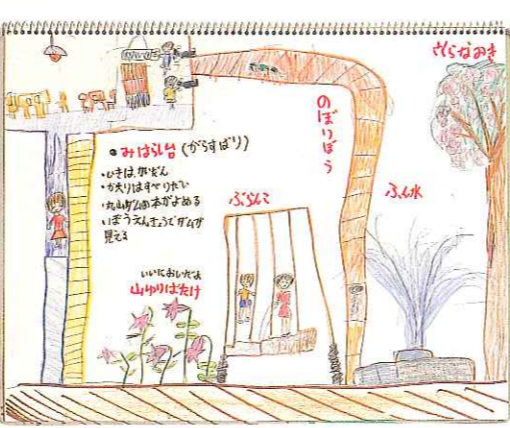 さくらなみき
のぼりぼう
●みはらし台(がらすばり)
・いきは かいだん
・かえりはすべりだい
・丸山ダムの本がよめる
・ぼうえんきょうでダムが
見える
ぶらんこ
ふん水
いいにおいだよ
山ゆりばたけ